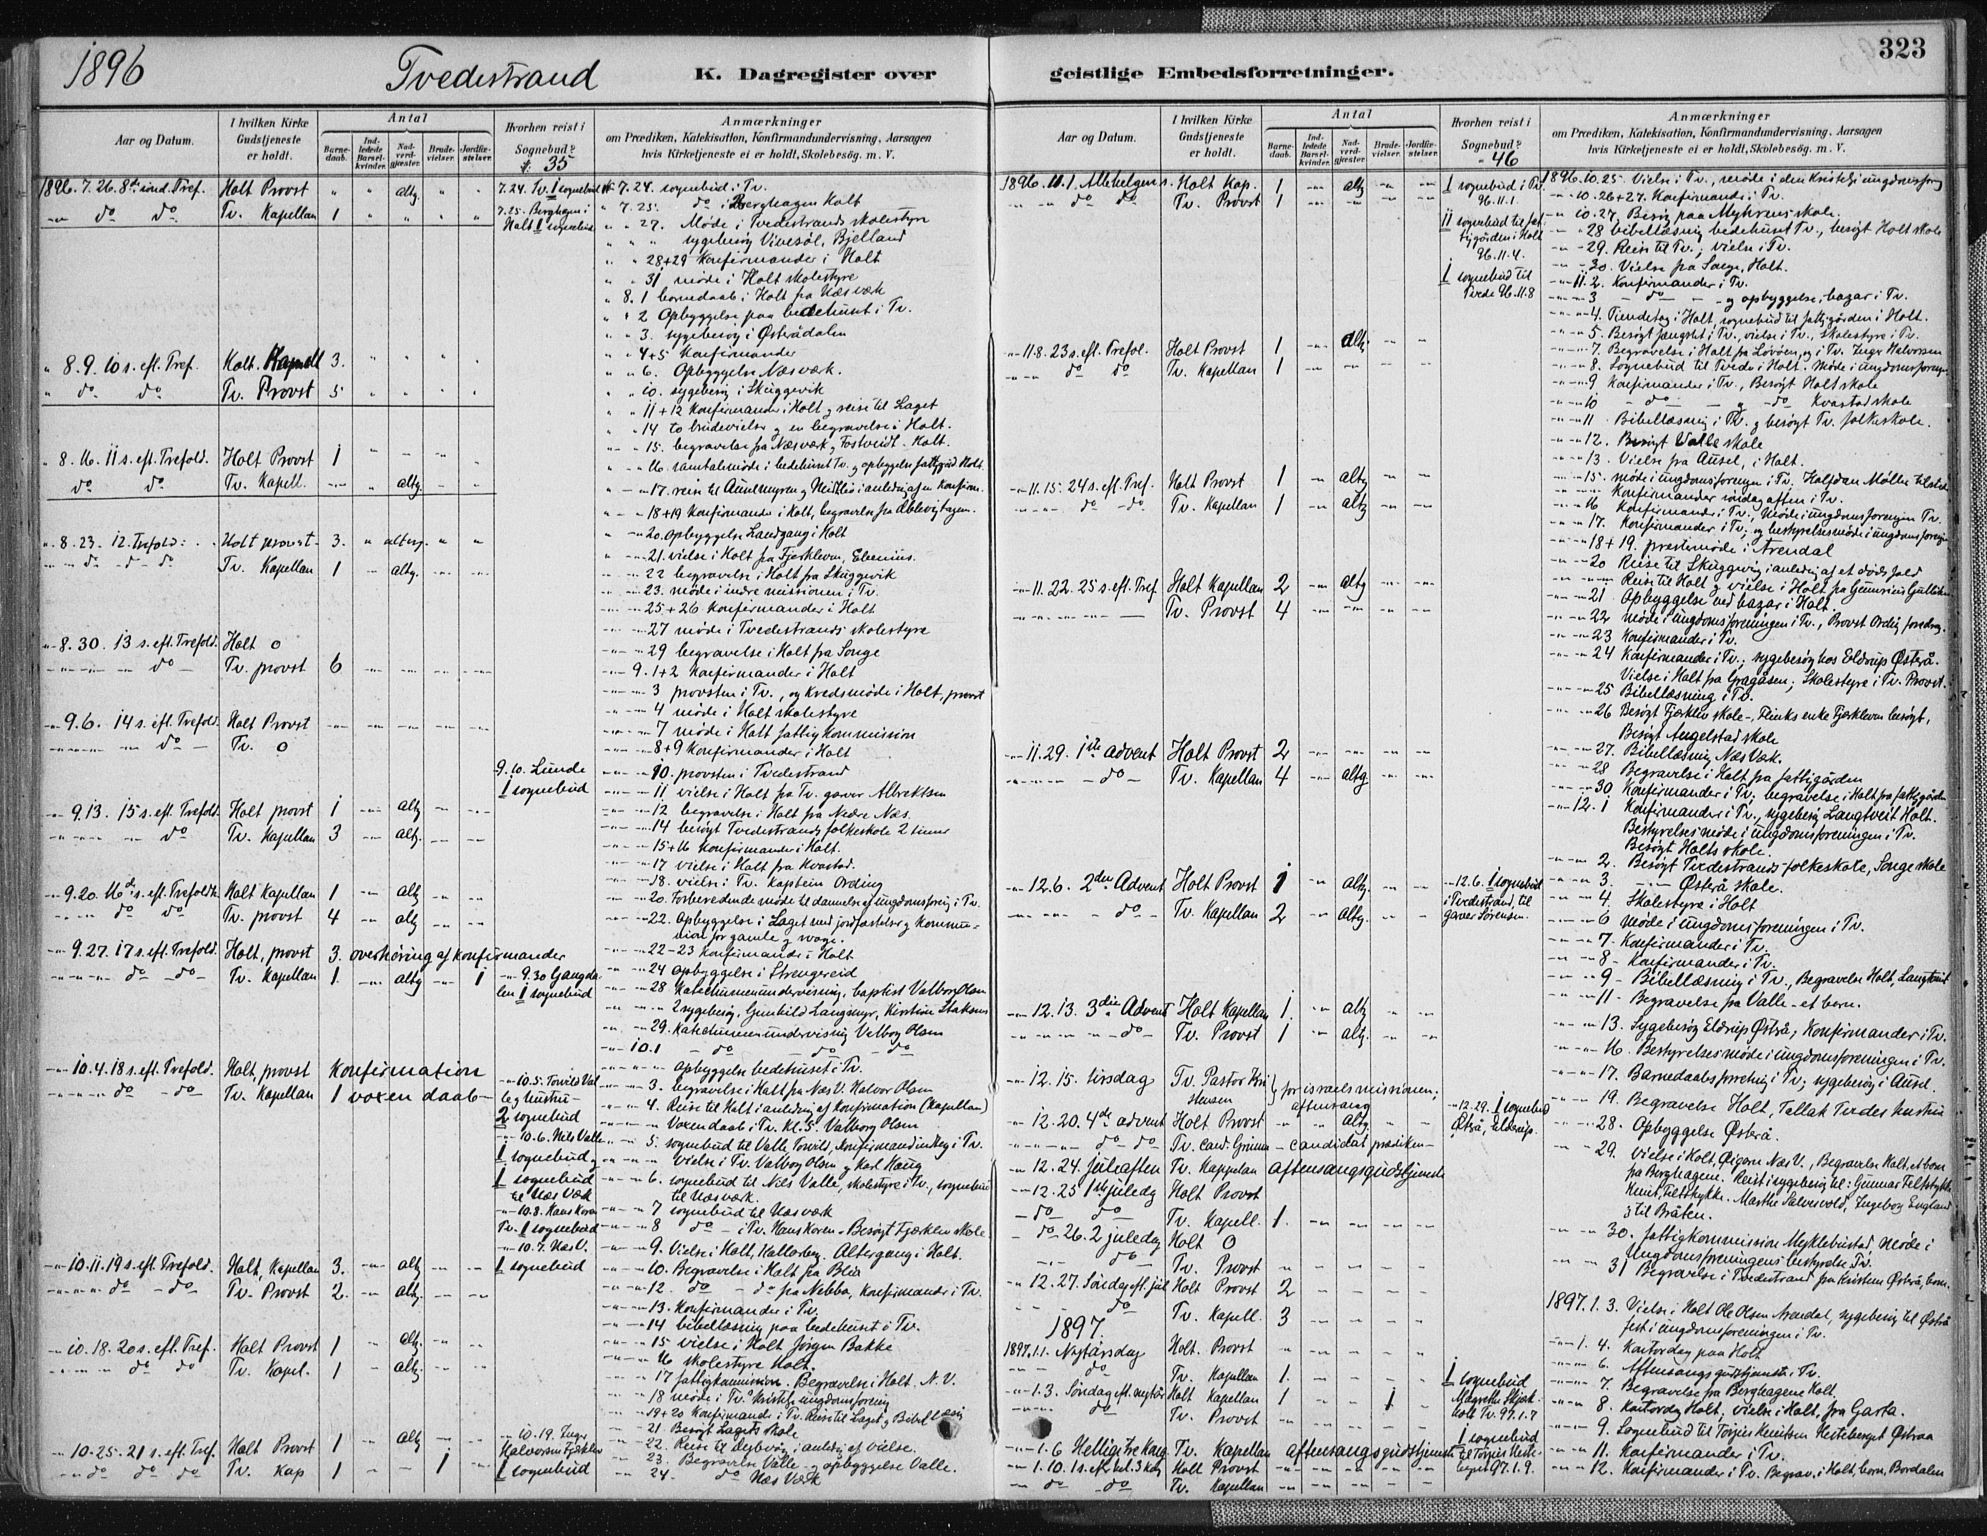 323
1896 Tvedestrand K. Dagregister over geistlige Embedsforretninger.
Aar og Datum.
I hvilken Kirke Gudstjeneste er holdt.
Antal
Barne-daab.
Ind-ledede Barsel-kvinder.
Nad-verd-gjester.
Brude-vielser.
Jordfæ-stelser.
Hvorhen reist i Sognebud?
35
Anmærkninger
om Prædiken, Katekisation, Konfirmandundervisning, Aarsagen
hvis Kirketjeneste ei er holdt, Skolebesög m. V.
1896. 7. 26. 8de sönd. Tref. Holt Provst " " altg. " "
do do Tv. Kapellan 1 " " " "
8. 9. 10 s. eft. Tref. Holt. Kapell 3.
do do Tv. Provst 5
8. 16. 11 s. eft. Trefold. Holt Provst 1
do do Tv. Kapell. altg.
8. 23. 12. Trefold. Holt provst 3. alterg.
do Tv. Kapellan 1 altg.
8. 30. 13 s. eft. Trefold. Holt 0
do Tv. provst 6
9. 6. 14 s. eft. Trefold. Holt Provst
do Tv. 0
9. 13. 15 s. eft. Trefold. Holt provst 1 altg
do Tv. Kapellan 3 altg.
9. 20. 16de s. eft. Trefoldh. Holt Kapellan 1 altg
do do Tv. provst 4 altg
9. 27. 17 s. eft. Trefold. Holt, provst 3. overhöring af konfirmander
do do Tv. Kapellan 1. altg 1
10. 4. 18 s. eft. Trefold. Holt, provst Konfirmation
do do Tv. Kapellan 1 voxen daab
10. 11. 19 s. eft Trefold. Holt, Kapellan 3. altg
do do Tv. Provst 2. altg.
10. 18. 20 s. eft. Tref. Holt Provst 1 altg.
do do Tv. Kapel. 1 altg.
10. 25. 21 s. eft. Tref. Holt Provst 1 altg
do do Tv. Kap 1 1
7.24. Tv. 1 sognebud
7.25. Berghagen i Holt 1 sognebud
9.10. Lunde
1 sognebud
9.30 Gangdalen 1 sognebud
10.5. Torvild Valle
2 sognebud
10.6. Nils Valle
1 sognebud
1 sognebud
til Næs Værk
10.8. Hans Koren
Tv. 1 sognebud
10.7. Næs V.
1 sognebud
10.19. Inger Halvorsen
1 sognebud
7.24. sognebud i Tv.
7.25. do i Berghagen Holt
27. Möde i Tvedestrands skolestyre
sygebesög Vivesöl, Bjelland
28+29 Konfirmander i Holt
31 möde i Holt skolestyre
8.1 barnedaab i Holt fra Næsværk
2 Opbyggelse paa bedehuset i Tv.
3. sygebesög i Österådalen
4+5 Konfirmander
6. Opbyggelse Næsværk.
10. sygebesög i Skuggevik
11+12 Konfirmander i Holt og reise til Laget
14 to brudevielser og en begravelse i Holt.
15. begravelse fra Næsværk og Fostveidt. Holt.
16 samtalemöde i bedehuset Tv. og opbyggelse fattiggård Holt.
18+19 Konfirmander i Holt, begravelse fra
20. Opbyggelse Landgang i Holt
21. vielse i Holt fra Fjerkleven,
22 begravelse i Holt fra Skuggevik
23. möde i indre missionen i Tv.
25+26 Konfirmander i Holt
27 möde i Tvedestrands skolestyre
29 begravelse i Holt fra Songe
9.1+2 Konfirmander i Holt
3 provsten i Tv., og kredsmöde i Holt, provst
4 möde i Holt skolestyre
7 möde i Holt fattigkommission
8+9 Konfirmander i Holt
10. provsten i Tvedestrand
11 vielse i Holt fra Tv. garver Albrektsen
12 begravelse i Holt fra Nedre Næs.
14 besögt Tvedestrands folkeskole 2 timer
15+16 Konfirmander i Holt.
17 vielse i Holt fra Kvastad.
18. vielse i Tv. kaptein Ording
20. Forberedende möde til dannelse af ungdomsforenig i Tv.
22. Opbyggelse i Laget med jordfæstelse og kommunion for gamle og svage.
22-23 Konfirmander i Holt
24 Opbyggelse i Strengereid
28 Katechumenundervisning, baptist Valborg Olsen
29. Katechumenundervisning Valborg Olsen
10.1 do do do
Opbyggelse bedehuset i Tv.
3. begravelse i Holt fra Næs V. Halvor Olsen
4. Reise til Holt i anledng af konfirmation (Kapellan)
Voxendaab i Tv. kl. 5. Valborg Olsen
5. sognebud til Valle Torvild, Konfirmandindtag i Tv.
Vielse i Tv. Valborg Olsen og Karl Haug
6. sognebud til Nils Valle, skolestyre i Tv., sognebud
til Næsværk.
7 sognebud til Næsværk
8 do i Tv. Hans Koren. Besögt Fjærkleiv skole
9. Vielse i Holt, Altergang i Holt.
10. Begravelse i Holt fra Blia
12. do do fra Nebba, Konfirmander i Tv.
13. Konfirmander i Tv.
14 bibellæsning paa bedehuset i Tv.
15 vielse i Holt Jörgen Bakke
16 skolestyre Holt.
17 fattigkommission. Begravelse i Holt. N.V.
18 möde i Tv. Kristelige ungdomsforenig
19+20 Konfirmander i Tv. Reise til Laget og Bibellæsnig
21 Besögt Lagets skole
22. Reise til Dybvåg i anledng af vielse.
23. Begravelse Valle og opbyggelse Valle.
24. do Næs Værk
Aar og Datum.
I hvilken Kirke Gudstjeneste er holdt.
Antal
Barne-daab.
Ind-ledede Barsel-kvinder.
Nad-verd-gjester.
Brude-vielser.
Jordfæ-stelser.
Hvorhen reist i Sognebud?
46
Anmærkninger
om Prædiken, Katekisation, Konfirmandundervisning, Aarsagen
hvis Kirketjeneste ei er holdt, Skolebesög m. V.
1896. 11. 1. Allehelgens. Holt Kap. 1 altg
do do Tv. Provst 1
11.8. 23 s. eft. Trefol. Holt Provst 1 altg
do do Tv. Kapellan 1
11.15. 24 s. eft. Tref. Holt Provst 1 altg
do Tv. Kapellan 1 altg
11.22. 25 s. eft. Tref. Holt Kapellan 2 altg
Tv. Provst 4
11.29. 1ste advent Holt Provst 2
do Tv. Kapellan 4 altg
12.6. 2den Advent Holt Provst 1 altg
do Tv. Kapellan 2 altg
12.13. 3die Advent Holt Kapellan 1. altg
do Tv. Provst 1 altg.
12.15. tirsdag Tv. Pastor Kristensen for israelsmissionen; aftensang
12.20. 4de advent Holt Provst altg
do do Tv. cand. candidat prædiken
12.24. juleaften Tv. Kappelan aftensangsgudstjeneste
12.25 1ste juledag Holt Provst
do do Tv. Kapell. 1.
do 26. 2 juledag Holt 0
do Tv. Provst
12.27. Söndag eft. jul Holt Provst 2
do Tv. Kapell. 3
1897.
1897. 1.1. Nytårsdag Holt. Provst
do Tv. Kapellan 1.
1.3. Söndag eft. nytår Holt Kapellan 1 1
do Tv. Provst
1.6 Hellig tre Kong. Tv. Kapellan aftensangsgudstjeneste
1.10. 1 s. eft. hel. 3 kg Holt Provst
do do Tv. Kapellan
1 sognebud i Tv.
96.11.1
11 sognebud til fattiggården i Holt
96.11.4.
1 sognebud til
Tvede 96.11.8
12.6. 1 sognebud
i Tvedestrand, til
garver Sörensen.
12.29. 1 sognebud
Österå, Elderup.
1 sognebud
Tv. 97.1.7
1 sognebud
97.1.9.
1896. 10.25. Vielse i Tv., möde i den kristelige ungdomsforng
10.26+27. Konfirmand. i Tv.
10.27. Besög paa Myhrens skole.
28 bibellæsnig bedehuset Tv., besögt Holt skole
29. Reise til Tv., vielse i Tv.
30. Vielse fra Songe, Holt.
11.2. Konfirmander i Tv.
3 do og opbyggelse, bazar i Tv.
4. Tiendetag i Holt, sognebud til fattiggården i Holt.
5. Besögt fængslet i Tv., vielse i Tv., Skolestyre i Tv.
7. Begravelse i Holt fra Lövöen, og i Tv. Inger Halvorsen
8. Sognebud til Tvede i Holt. Möde i ungdomsforeng.
9 Konfirmander i Tv., Besögt Holt skole
10 do og do Kvastad skole
11 Bibellæsnig i Tv. og besögt Tv. folkeskole.
12. Besögt Valle skole
13. Vielse fra Ausel, i Holt.
15. möde i ungdomsforengn i Tv. Halfdan Möller
Konfirmander söndag aften i Tv.
16 Konfirmander i Tv., Möde i ungdomsforenigen Tv.
17. Konfirmander i Tv., og bestyrelsesmöde i ungdomsforenign
18+19. præstemöde i Arendal
20 Reise til Skuggevig i anledng af et dödsfald
Reise til Holt og vielse i Holt fra
21 Opbyggelse ved bazar i Holt
22 möde i ungdomsforeningen i Tv., Provst Ordig foredrag.
23 Konfirmander i Tv.
24 Konfirmander i Tv., sygebesög hos Eldrup Österå.
Vielse i Holt fra Gragåsen; Skolestyre i Tv. Provst.
25 Bibellæsning i Tv.
26 Besögt Fjærkleiv skole, Flinks enke Fjærkleven besögt,
Besögt Angelstad skole
27. Bibellæsning Næs Værk.
28 Begravelse i Holt fra fattiggården
30 Konfirmander i Tv; begravelse i Holt fra fattiggården
12.1 Konfirmander i Tv., sygebesög Langtveit Holt.
Bestyrelsesmöde i ungdomsforeningen i Tv.
Besögt Holts skole.
2. Besögt Tvedestrands folkeskole, Songe skole
3. Österå skole.
4. Skolestyre i Holt
6 möde i ungdomsforeningen i Tv.
7. Konfirmander i Tv.
8 - Konfirmander i Tv.
9 - Bibellæsning i Tv., Begravelse Holt, Langtveit
11 - Begravelse fra Valle - et barn.
13. Sygebesög Eldrup Österå, Konfirmander i Tv.
16. Bestyrelsesmöde i ungdomsforeningen i Tv.
17. Barnedaabsforretng i Tv., sygebesög i Ausel.
19. Begravelse Holt, Tellak Tvedes hustru
28. Opbyggelse Österå.
29. Vielse i Holt, Næs V., Begravelse Holt, et barn
fra Berghagen. Reist i sygebesög til: Gunnar
Marthe Salvesvold, Ingeborg England
og til Bråten.
30. fattigkommission Myklebustad, Möde i
Ungdomsforeningens bestyrelse Tv.
31 Begravelse i Tvedestrand fra Kristen Österå, barn.
1897. 1.3. Vielse i Holt Ole Olsen Arendal, sygebesög til Österå
fest i ungdomsforeningen i Tv.
1.4. Kontordag paa Holt
6. Aftensangsgudstjeneste Tv.
7. Begravelse fra Berghagene Holt.
8. Kontordag Holt, vielse i Holt, fra Garta.
9. Sognebud til Torjus Knutsen Hesteberget Österaa
11. Konfirmander i Tv.
12. Konfirmander i Tv. Begrav. i Holt, barn, Bordalen